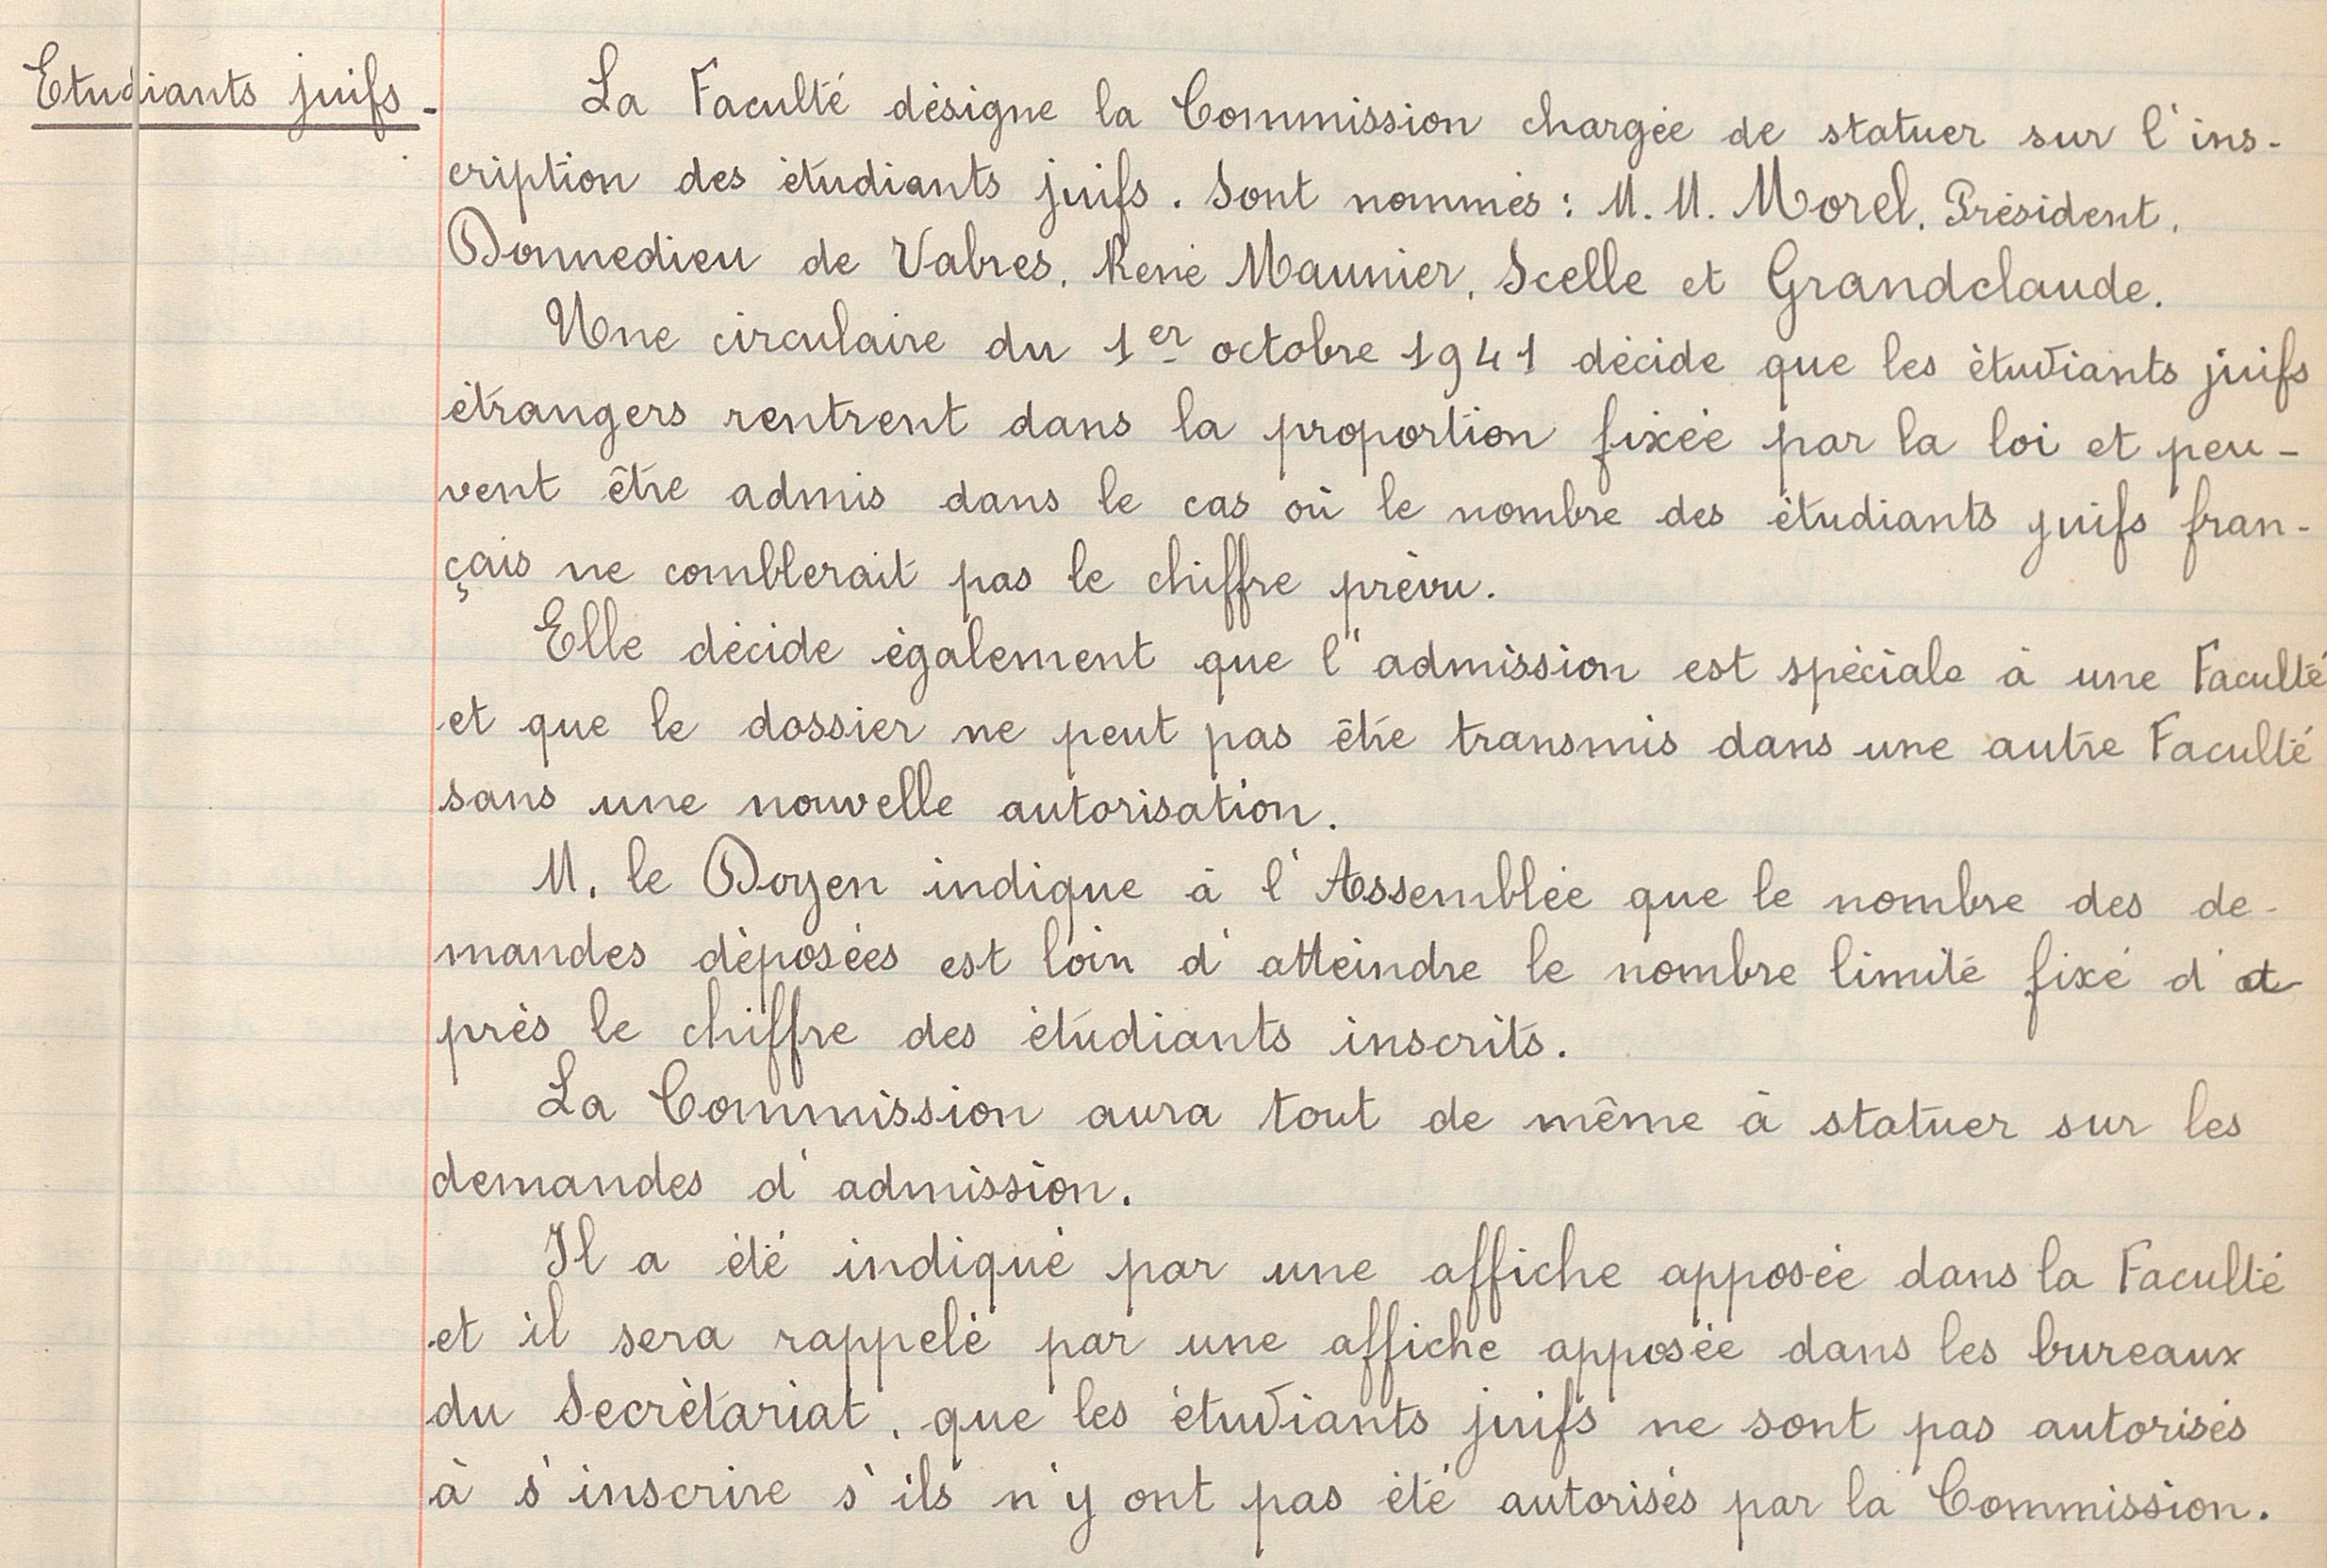 Etudiants juifs -
La Faculté désigne la Commission chargée de statuer sur l'ins-
cription des étudiants juifs. Sont nommés : M.M. Morel, Président,
Donnedieu de Vabres, René Maunier, Scelle et Grandclaude.
Une circulaire du 1er octobre 1941 décide que les étudiants juifs
étrangers rentrent dans la proportion fixée par la loi et peu-
vent être admis dans le cas où le nombre des étudiants juifs fran-
çais ne comblerait pas le chiffre prévu.
Elle décide également que l'admission est spéciale à une Faculté
et que le dossier ne peut pas être transmis dans une autre Faculté
sans une nouvelle autorisation.
M. le Doyen indique à l'Assemblée que le nombre des de-
mandes déposées est loin d'atteindre le nombre limité fixé d'a-
près le chiffre des étudiants inscrits.
La Commission aura tout de même à statuer sur les
demandes d'admission.
Il a été indiqué par une affiche apposée dans la Faculté
et il sera rappelé par une affiche apposée dans les bureaux
du Secrétariat, que les étudiants juifs ne sont pas autorisés
à s'inscrire s'ils n'y ont pas été autorisés par la Commission.